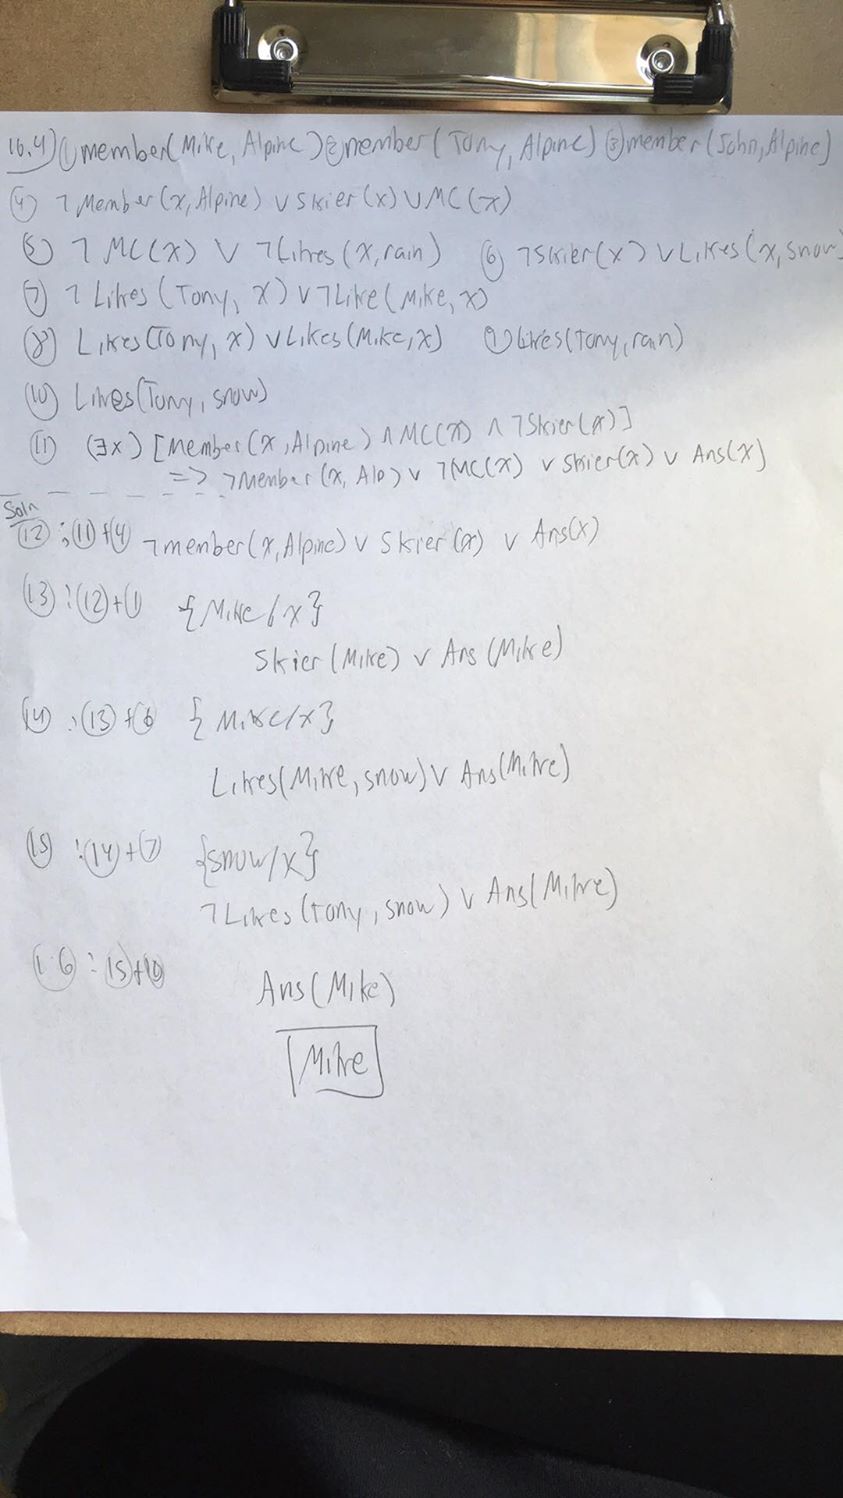 16.4) ① member(Mike, Alpine) ② member(Tony, Alpine) ③ member(John, Alpine)
④ ¬Member(x, Alpine) ∨ Skier(x) ∨ MC(x)
⑤ ¬MC(x) ∨ ¬Likes(x, rain) ⑥ ¬Skier(x) ∨ Likes(x, snow)
⑦ ¬Likes(Tony, x) ∨ ¬Like(Mike, x)
⑧ Likes(Tony, x) ∨ Likes(Mike, x) ⑨ Likes(Tony, rain)
⑩ Likes(Tony, snow)
⑪ (∃x) [Member(x, Alpine) ∧ MC(x) ∧ ¬Skier(x)]
=> ¬Member(x, Alp) ∨ ¬MC(x) ∨ Skier(x) ∨ Ans(x)
Soln
⑫ : ⑪ + ④ ¬member(x, Alpine) ∨ Skier(x) ∨ Ans(x)
⑬ : ⑫ + ① {Mike/x}
Skier(Mike) ∨ Ans(Mike)
⑭ : ⑬ + ⑥ {Mike/x}
Likes(Mike, snow) ∨ Ans(Mike)
⑮ : ⑭ + ⑦ {snow/x}
¬Likes(Tony, snow) ∨ Ans(Mike)
⑯ : ⑮ + ⑩
Ans(Mike)
Mike